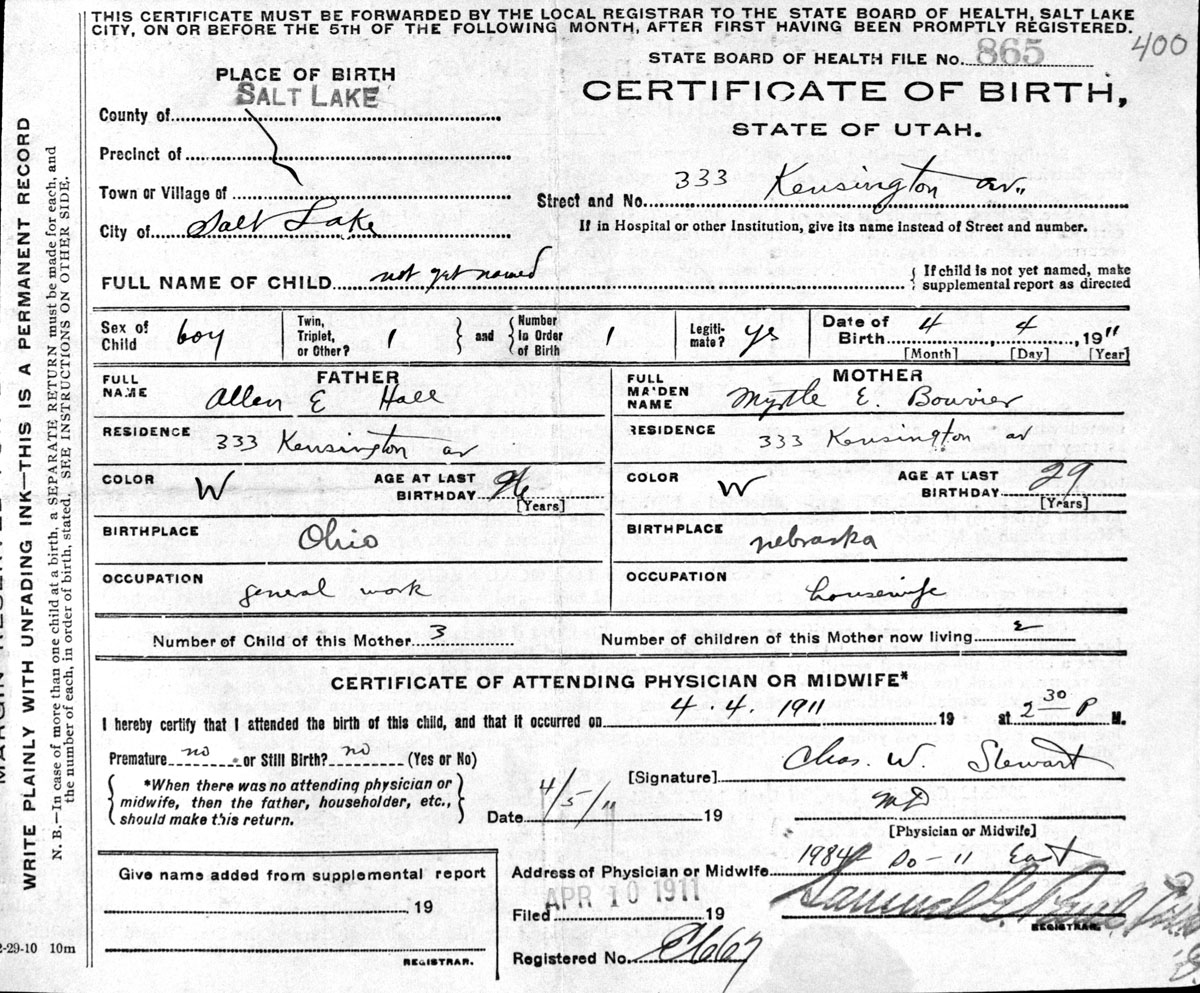 THIS CERTIFICATE MUST BE FORWARDED BY THE LOCAL REGISTRAR TO THE STATE BOARD OF HEALTH, SALT LAKE
CITY, ON OR BEFORE THE 5TH OF THE FOLLOWING MONTH, AFTER FIRST HAVING BEEN PROMPTLY REGISTERED.
400
STATE BOARD OF HEALTH FILE No. 865
PLACE OF BIRTH
CERTIFICATE OF BIRTH,
STATE OF UTAH.
County of SALT LAKE
Precinct of
Town or Village of
City of Salt Lake
Street and No. 333 Kensington av"
If in Hospital or other Institution, give its name instead of Street and number.
FULL NAME OF CHILD not yet named
{ If child is not yet named, make
supplemental report as directed
Sex of Child boy
Twin, Triplet, or Other? 1 } and { Number In Order of Birth 1
Legiti-mate? yes
Date of Birth 4, 4, 19 11
[Month] [Day] [Year]
FATHER
FULL NAME Allen E Hall
RESIDENCE 333 Kensington av
COLOR W AGE AT LAST BIRTHDAY
[Years]
BIRTHPLACE Ohio
OCCUPATION general work
MOTHER
FULL MAIDEN NAME Myrtle E. Bouvier
RESIDENCE 333 Kensington av
COLOR W AGE AT LAST BIRTHDAY 29
[Years]
BIRTHPLACE nebraska
OCCUPATION housewife
Number of Child of this Mother 3
Number of children of this Mother now living 2
CERTIFICATE OF ATTENDING PHYSICIAN OR MIDWIFE*
I hereby certify that I attended the birth of this child, and that it occurred on 4 4. 1911 19 at 2 30 P M.
Premature no or Still Birth? no (Yes or No)
{ *When there was no attending physician or
midwife, then the father, householder, etc.,
should make this return. }
[Signature] Chas. W. Stewart
Date 4/5/11 19
MD
[Physician or Midwife]
Address of Physician or Midwife 1984 So - 11 East
Give name added from supplemental report
19
REGISTRAR.
Filed APR 10 1911 19
Samuel G. Paul
REGISTRAR.
Registered No.
WRITE PLAINLY WITH UNFADING INK—THIS IS A PERMANENT RECORD
N. B.—In case of more than one child at a birth, a SEPARATE RETURN must be made for each, and
the number of each, in order of birth, stated. SEE INSTRUCTIONS ON OTHER SIDE.
-29-10 10m